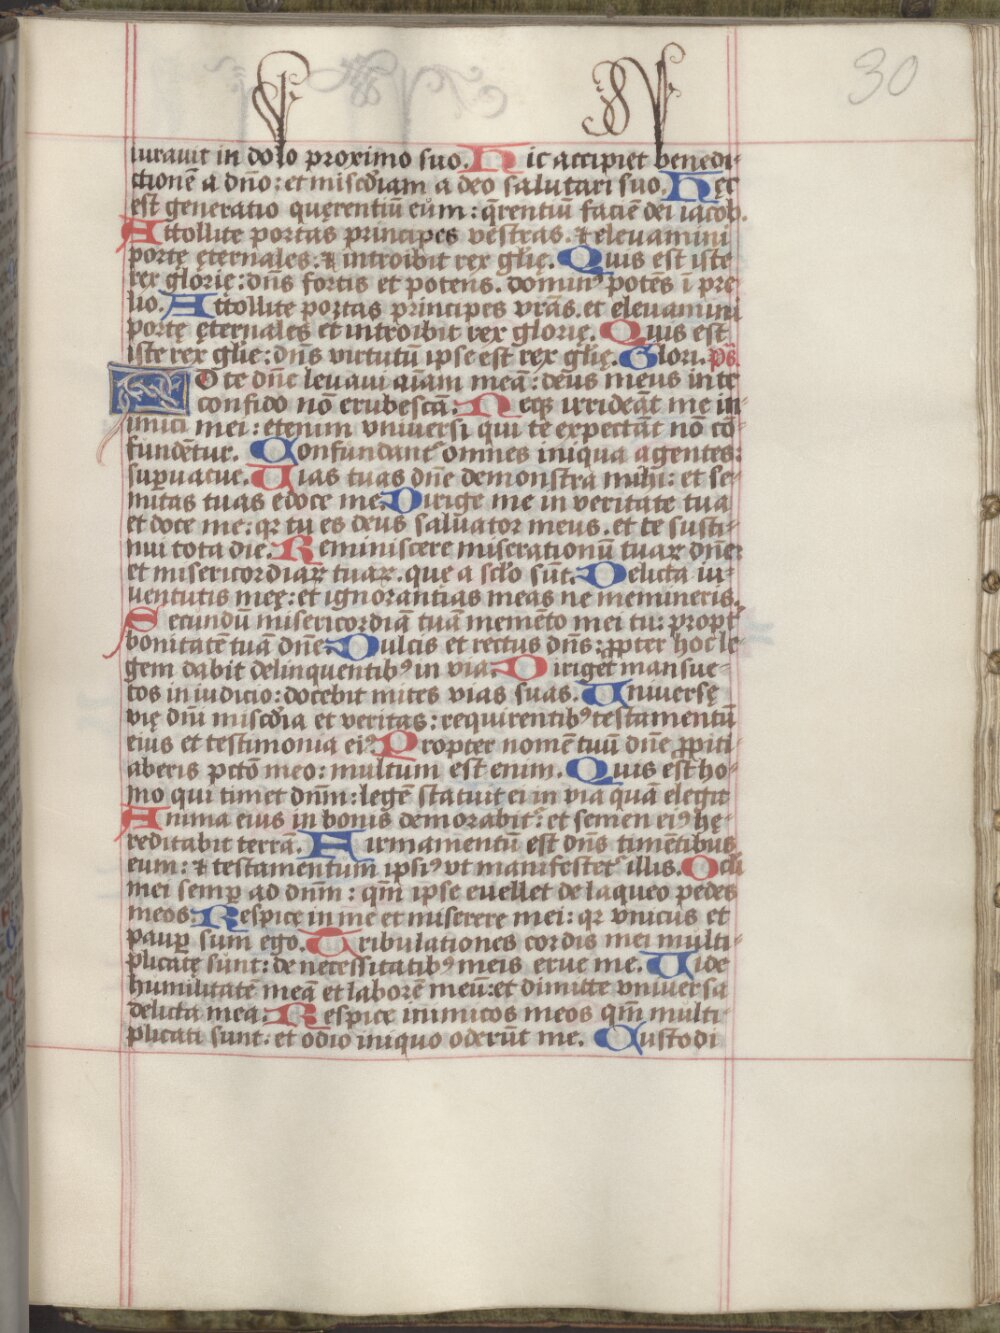 30
iurauit in dolo proximo suo. Hic accipiet benedi-
ctionē a dño: et miscd̄iam a deo salutari suo. Hęc
est generatio querentiū eūm: q̄rentiū faciē dei iacob.
Attollite portas principes vestras. ⁊ eleuamini
portę ęternales: ⁊ introibit rex glię. Quis est iste
rex glorię: dñs fortis et potens. dominꝰ potēs ī prę
lio. Attollite portas principes vr̄as. et eleuamini
portę ęternales et introibit rex glorię. Quis est
iste rex glię: dñs virtutū ipse est rex glię. Glori. ps̄.
AD te dñe leuaui aīam meā: deus meus in te
confido nō erubescā: Neqꝫ irrideāt me in
imici mei: etenim vniuersi qui te expectāt nō cō
fundētur. Confundant᷑ omnes iniqua agentes:
supuacue. Uias tuas dñe demonstra mihi: et se-
mitas tuas edoce me. Dirige me in veritate tua
et doce me: qꝛ tu es deus saluator meus. et te susti-
nui tota die. Reminiscere miserationū tuaꝝ dñe:
et misericordiaꝝ tuaꝝ. que a sclo sūt. Delicta iu-
uentutis meę: et ignorantias meas ne memineris.
Secundū misericordiā tuā memēto mei tu: propt̄
bonitatē tuā dñe. Dulcis et rectus dñs: ꝓpter hoc le-
gem dabit delinquentibꝰ in via. Diriget mansue-
tos in iudicio: docebit mites vias suas. Uniuersę
vię dñi miscd̄ia et veritas: requirentibꝰ testamentū
eius et testimonia eiꝰ. Propter nomē tuū dñe ꝓpiti-
aberis pctō meo: multum est enim. Quis est ho-
mo qui timet dnm̄: legē statuit ei in via quā elegit
Anima eius in bonis demorabit᷑: et semen eiꝰ he-
reditabit terrā. Firmamentū est dñs timētibus
eum: ⁊ testamentum ipsiꝰ vt manifestet᷑ illis. Oculi
mei semꝑ ad dnm̄: qm̄ ipse euellet de laqueo pedes
meos. Respice in me et miserere mei: qꝛ vnicus et
pauꝑ sum ego. Tribulationes cordis mei multi-
plicatę sunt: de necessitatibꝰ meis erue me. Uide
humilitatē meā et laborē meū: et dimitte vniuersa
delicta mea. Respice inimicos meos qm̄ multi-
plicati sunt. et odio iniquo oderūt me. Custodi